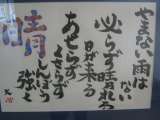 やまない雨は
ない
必らず晴れる
日が来る
あせらず
くさらず
しんぼう
強く
晴